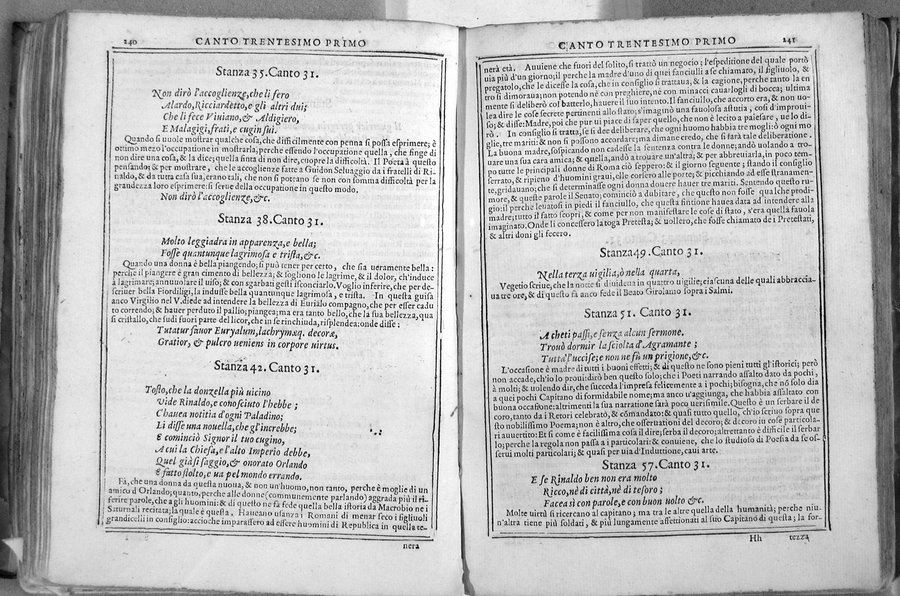 240 CANTO TRENTESIMO PRIMO
Stanza 35. Canto 31.
Non dirò l'accoglienze, che li fero
Alardo, Ricciardetto, e gli altri dui;
Che li fece Viuiano, & Aldigiero,
E Malagigi, frati, e cugin sui.
Quando si uuole mostrar qualche cosa, che difficilmente con penna si possa esprimere; è
ottimo mezo l'occupatione in mostrarla, perche essendo l'occupatione quella, che finge di
non dire una cosa, & la dice; quella finta di non dire, cuopre la difficoltà. Il Poeta à questo
pensando; & per mostrare, che le accoglienze fatte a Guidon Seluaggio da i fratelli di Ri-
naldo, & da tutta casa sua, erano tali, che non si poteano se non con somma difficoltà per la
grandezza loro esprimere: si serue della occupatione in questo modo.
Non dirò l'accoglienze, &c.
Stanza 38. Canto 31.
Molto leggiadra in apparenza, e bella;
Fosse quantunque lagrimosa e trista, &c.
Quando una donna è bella piangendo; si può tener per certo, che sia ueramente bella:
perche il piangere è gran cimento di bellezza; & sogliono le lagrime, & il dolor, ch'induce
à lagrimare; annuuolare il uiso; & con sgarban gesti isconciarlo. Voglio inferire, che per de-
scriuer bella Fiordiligi, la indusse bella quantunque lagrimosa, e trista. In questa guisa
anco Virgilio nel V. diede ad intendere la bellezza di Eurialo compagno, che per esser cadu
to correndo; & hauer perduto il pallio; piangea; ma era tanto bello, che la sua bellezza, qua
si cristallo, che sudi fuori parte del licor, che in se rinchiuda, risplendea: onde disse:
Tutatur fauor Euryalum, lachrymæq. decoræ,
Gratior, & pulcro ueniens in corpore uirtus.
Stanza 42. Canto 31.
Tosto, che la donzella più uicino
Vide Rinaldo, e conosciuto l'hebbe;
Ch'auea notitia d'ogni Paladino;
Li disse una nouella, che gl'increbbe;
E cominciò Signor il tuo cugino,
A cui la Chiesa, e l'alto Imperio debbe,
Quel già sì saggio, & onorato Orlando
E fatto stolto, e ua pel mondo errando.
Fà, che una donna da questa nuoua, & non un'huomo, non tanto, perche è moglie di un
amico d'Orlando; quanto, perche alle donne (communemente parlando) aggrada più il ri-
ferire parole, che a gli huomini: & di questo ne fa fede quella bella istoria da Macrobio ne i
Saturnali recitata; la quale è questa, Haueano usanza i Romani di menar seco i figliuoli
grandicelli in consiglio: accioche imparassero ad essere huomini di Republica in quella te-
nera
CANTO TRENTESIMO PRIMO 241
nerà età. Auuiene che fuori del solito, si trattò un negocio; l'espeditione del quale portò
uia più d'un giorno; il perche la madre d'uno di quei fanciulli a se chiamato, il figliuolo, &
pregatolo, che le dicesse la cosa, che in consiglio si trattaua, & la cagione, perche tanto la en
tro si dimoraua; non potendo nè con preghiere, nè con minacci cauargliela di bocca; ultima
mente si deliberò col batterlo, hauere il suo intento. Il fanciullo, che accorto era, & non uo-
lea dire le cose secrete pertinenti allo stato; s'imaginò una fauolosa astutia, così d'improui-
so; & disse: Madre, poi che pur ui piace di saper quello, che non è lecito a palesare, ue lo di-
rò. In consiglio si tratta, se si dee deliberare, che ogni huomo habbia tre mogli; ò ogni mo
glie, tre mariti: & non si possono accordare; ma dimane credo, che si farà tale deliberatione.
La buona madre, sospicando non cadesse la sentenza contra le donne; andò uolando a tro-
uare una sua cara amica; & quella, andò a trouare un'altra; & per abbreuiarla, in poco tem-
po tutte le principali donne di Roma ciò seppero: & il giorno seguente; stando il consiglio
serrato, & ripieno d'huomini graui, elle corsero alle porte; & picchiando ad esse stranamen-
te, gridauano: che si determinasse ogni donna douere hauer tre mariti. Sentendo questo ru-
more, & queste parole il Senato, cominciò a dubitare, che questo non fosse qualche prodi-
gio; il perche leuatosi in piedi il fanciullo, che questa fintione hauea data ad intendere alla
madre; tutto il fatto scoprì, & come per non manifestare le cose di stato, s'era quella fauola
imaginato. Onde li concessero la toga Pretesta; & uollero, che fosse chiamato de i Pretestati,
& altri doni gli fecero.
Stanza 49. Canto 31.
Nella terza uigilia, ò nella quarta,
Vegetio scriue, che la notte si diuidea in quattro uigilie; ciascuna delle quali abbraccia-
ua tre ore, & di questo fa anco fede il Beato Girolamo sopra i Salmi.
Stanza 51. Canto 31.
A cheti passi, e senza alcun sermone.
Trouò dormir la sciolta d'Agramante;
Tutta l'uccise; e non ne fù un prigione, &c.
L'occasione è madre di tutti i buoni effetti; & di questo ne sono pieni tutti gl'istorici; però
non accade, ch'io lo proui: dirò ben questo solo; che i Poeti narrando assalto dato da pochi,
à molti; & uolendo dir, che succeda l'impresa felicemente a i pochi; bisogna, che nõ solo dia
a quei pochi Capitano di formidabile nome; ma anco u'aggiunga, che habbia assaltato con
buona occasione: altrimenti la sua narratione sarà poco uerisimile. Questo è un serbare il de
coro, tanto da i Retori celebrato, & cõmandato: & quasi tutto quello, ch'io scriuo sopra que
sto nobilissimo Poema; non è altro, che osseruationi del decoro; & decoro in cose particola-
ri auuertito: Et si come è facilissima cosa il dire; serba il decoro; altrettanto è difficile il serbar
lo; perche la regola non passa a i particolari: & conuiene, che lo studioso di Poesia da se os-
serui molti particolari; & quasi per uia d'Induttione, caui arte.
Stanza 57. Canto 31.
E se Rinaldo ben non era molto
Ricco, nè di città, nè di tesoro;
Facea sì con parole, e con buon uolto &c.
Molte uirtù si ricercano al capitano; ma tra le altre quella della humanità; perche niu-
n'altra tiene più soldati, & più lungamente affettionati al suo Capitano di questa; la for-
Hh tezza